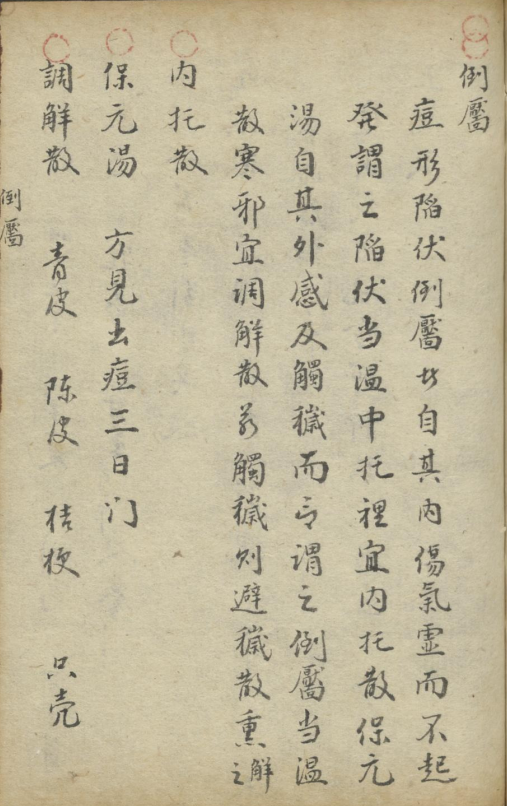 倒靨
痘形陷伏倒靨皆自其内傷氣虛而不起
発謂之陷伏当温中托裡宜内托散保元
湯自其外感及觸穢而言謂之倒靨当温
散寒邪宜调解散若觸穢則避穢散熏解之
内托散
保元湯 方見出痘三日门
調解散 青皮 陈皮 桔梗 只壳
倒靨